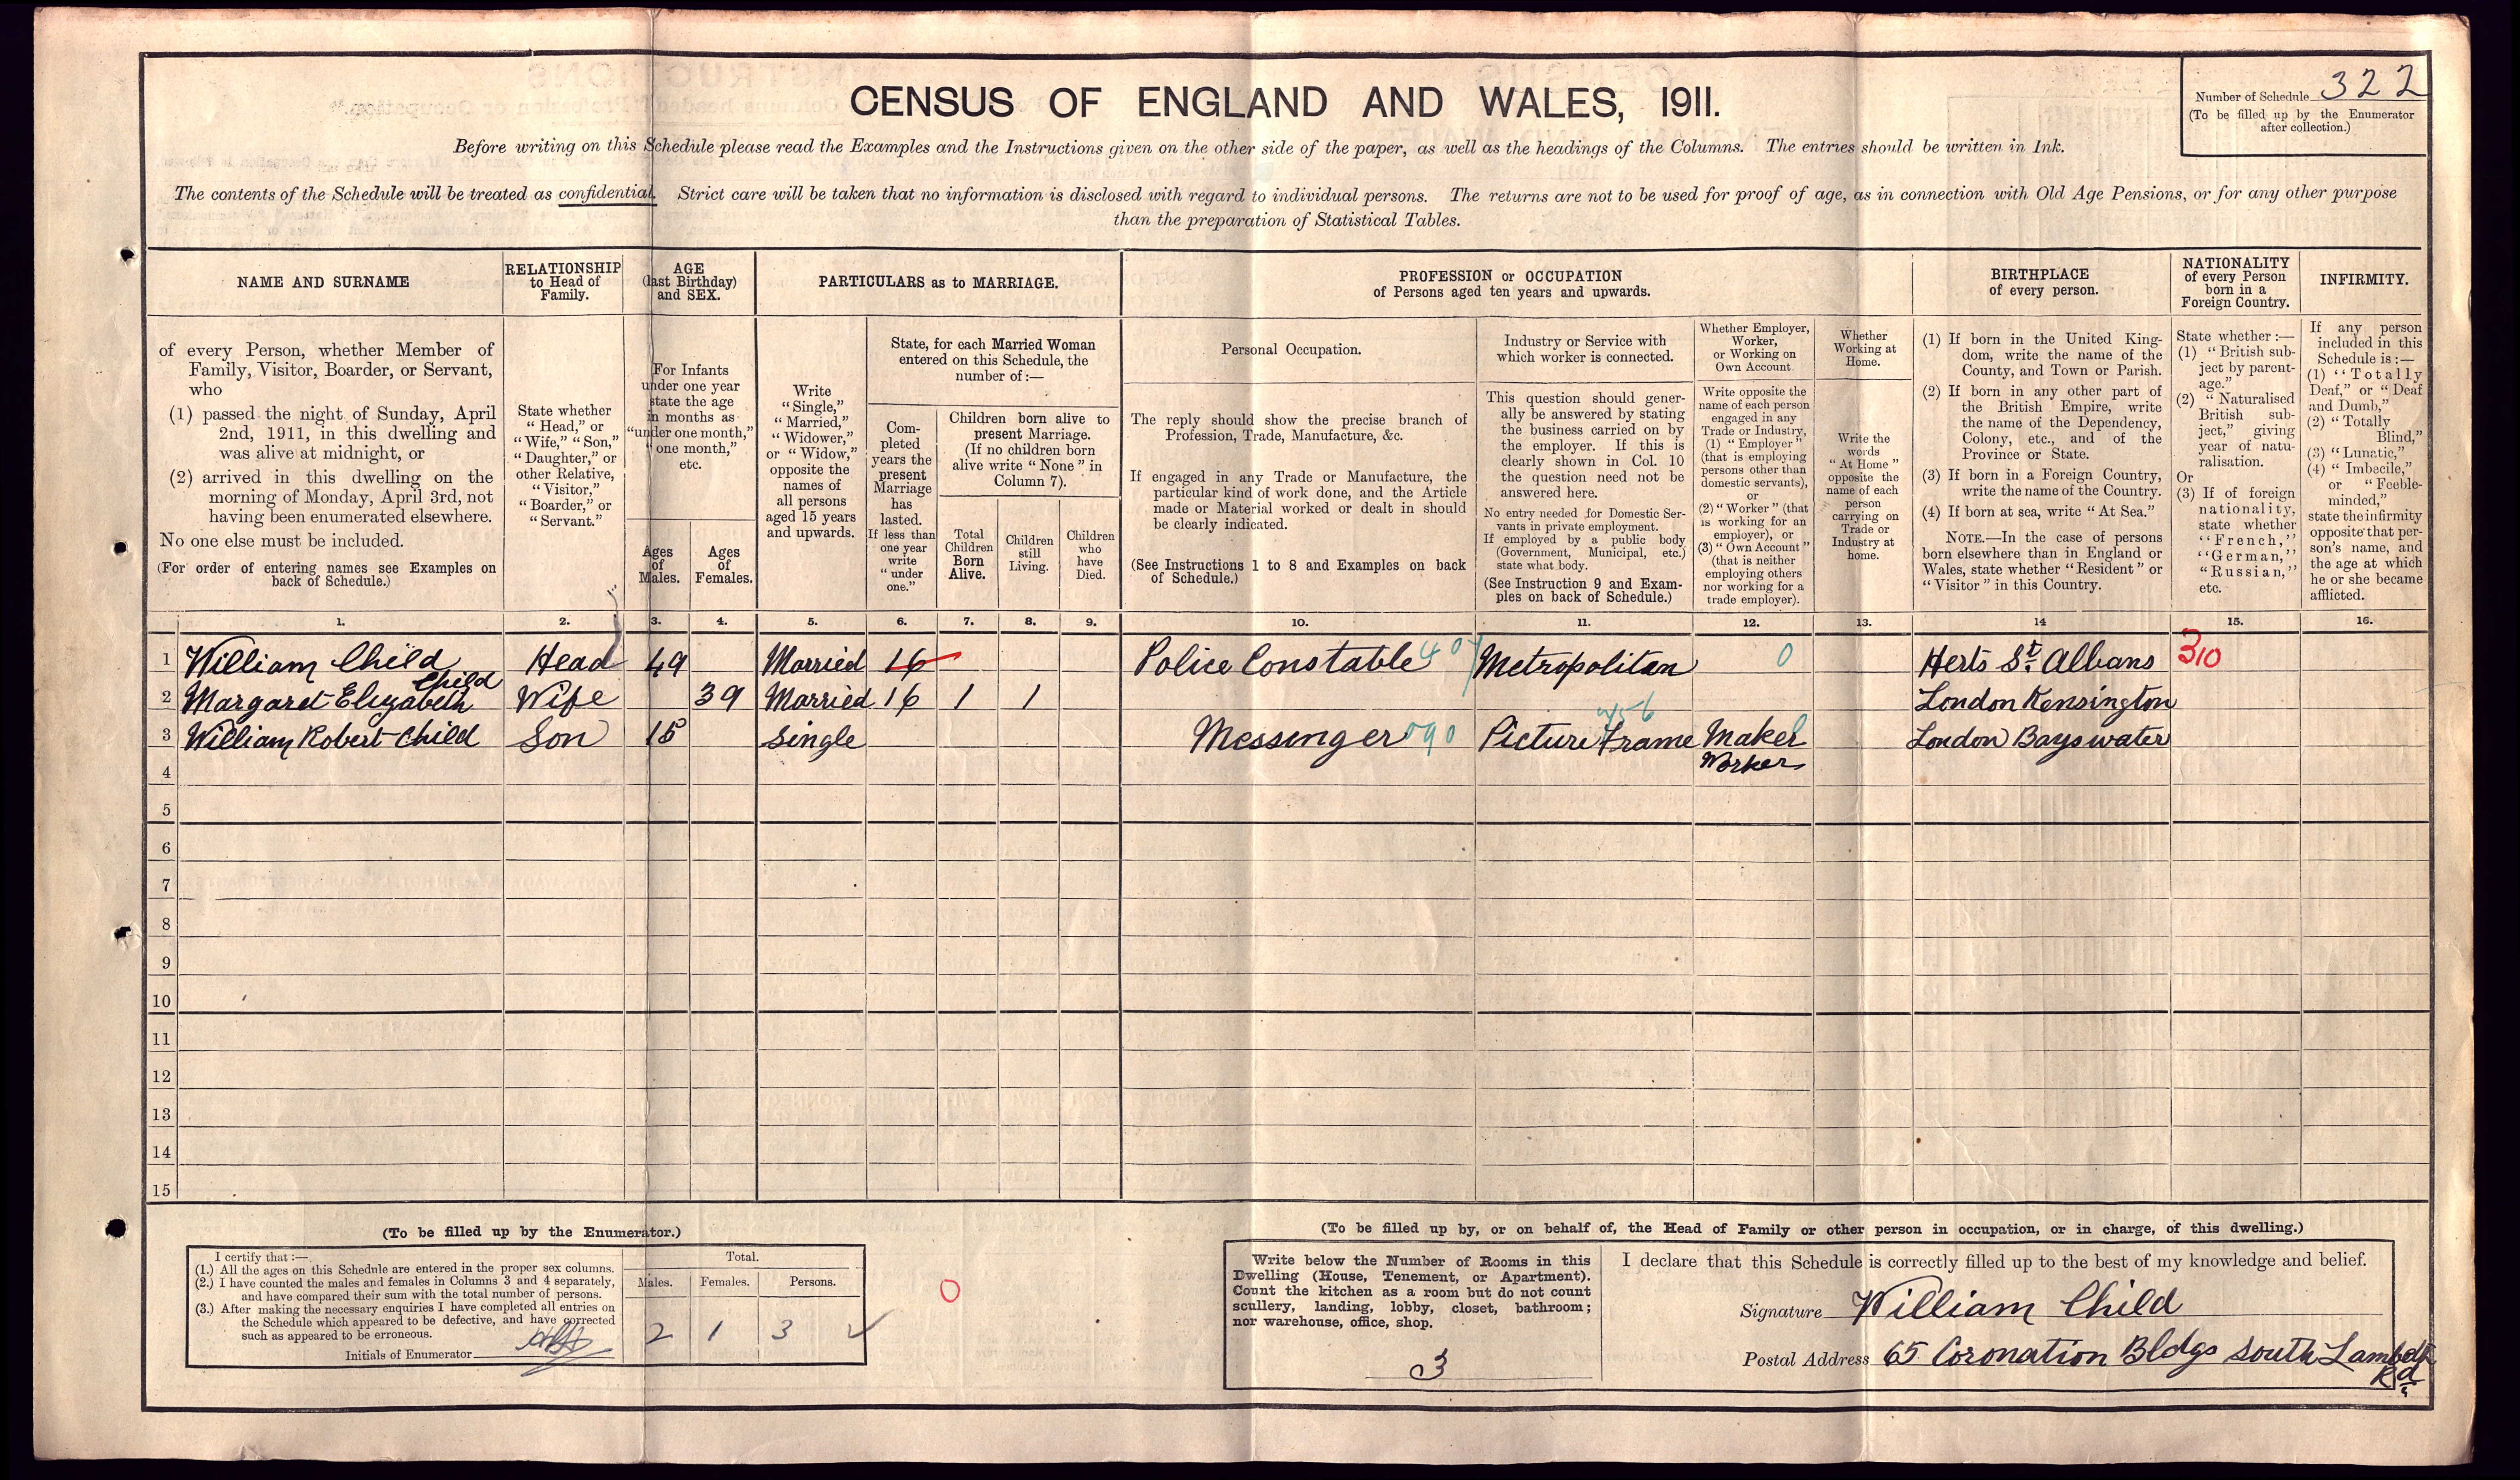 CENSUS OF ENGLAND AND WALES, 1911.
Number of Schedule 322
(To be filled up by the Enumerator
after collection.)
Before writing on this Schedule please read the Examples and the Instructions given on the other side of the paper, as well as the headings of the Columns. The entries should be written in Ink.
The contents of the Schedule will be treated as confidential. Strict care will be taken that no information is disclosed with regard to individual persons. The returns are not to be used for proof of age, as in connection with Old Age Pensions, or for any other purpose
than the preparation of Statistical Tables.
NAME AND SURNAME
of every Person, whether Member of
Family, Visitor, Boarder, or Servant,
who
(1) passed the night of Sunday, April
2nd, 1911, in this dwelling and
was alive at midnight, or
(2) arrived in this dwelling on the
morning of Monday, April 3rd, not
having been enumerated elsewhere.
No one else must be included.
(For order of entering names see Examples on
back of Schedule.)
RELATIONSHIP
to Head of
Family.
State whether
"Head," or
"Wife," "Son,"
"Daughter," or
other Relative,
"Visitor,"
"Boarder," or
"Servant."
AGE
(last Birthday)
and SEX.
For Infants
under one year
state the age
in months as
"under one month,"
"one month,"
etc.
Ages
of
Males.
Ages
of
Females.
PARTICULARS as to MARRIAGE.
Write
"Single,"
"Married,"
"Widower,"
or "Widow,"
opposite the
names of
all persons
aged 15 years
and upwards.
State, for each Married Woman
entered on this Schedule, the
number of :—
Com-
pleted
years the
present
Marriage
has
lasted.
If less than
one year
write
"under
one."
Children born alive to
present Marriage.
(If no children born
alive write "None" in
Column 7).
Total
Children
Born
Alive.
Children
still
Living.
Children
who
have
Died.
PROFESSION or OCCUPATION
of Persons aged ten years and upwards.
Personal Occupation.
The reply should show the precise branch of
Profession, Trade, Manufacture, &c.
If engaged in any Trade or Manufacture, the
particular kind of work done, and the Article
made or Material worked or dealt in should
be clearly indicated.
(See Instructions 1 to 8 and Examples on back
of Schedule.)
Industry or Service with
which worker is connected.
This question should gener-
ally be answered by stating
the business carried on by
the employer. If this is
clearly shown in Col. 10
the question need not be
answered here.
No entry needed for Domestic Ser-
vants in private employment.
If employed by a public body
(Government, Municipal, etc.)
state what body.
(See Instruction 9 and Exam-
ples on back of Schedule.)
Whether Employer,
Worker,
or Working on
Own Account.
Write opposite the
name of each person
engaged in any
Trade or Industry,
(1) "Employer"
(that is employing
persons other than
domestic servants),
or
(2) "Worker" (that
is working for an
employer), or
(3) "Own Account"
(that is neither
employing others
nor working for a
trade employer).
Whether
Working at
Home.
Write the
words
"At Home"
opposite the
name of each
person
carrying on
Trade or
Industry at
home.
BIRTHPLACE
of every person.
(1) If born in the United King-
dom, write the name of the
County, and Town or Parish.
(2) If born in any other part of
the British Empire, write
the name of the Dependency,
Colony, etc., and of the
Province or State.
(3) If born in a Foreign Country,
write the name of the Country.
(4) If born at sea, write "At Sea."
NOTE.—In the case of persons
born elsewhere than in England or
Wales, state whether "Resident" or
"Visitor" in this Country.
NATIONALITY
of every Person
born in a
Foreign Country.
State whether :—
(1) "British sub-
ject by parent-
age."
(2) "Naturalised
British sub-
ject," giving
year of natu-
ralisation.
Or
(3) If of foreign
nationality,
state whether
"French,"
"German,"
"Russian,"
etc.
INFIRMITY.
If any person
included in this
Schedule is :—
(1) "Totally
Deaf," or "Deaf
and Dumb,"
(2) "Totally
Blind,"
(3) "Lunatic,"
(4) "Imbecile,"
or "Feeble-
minded,"
state the infirmity
opposite that per-
son's name, and
the age at which
he or she became
afflicted.
1. 2. 3. 4. 5. 6. 7. 8. 9. 10. 11. 12. 13. 14 15. 16.
1 William Child Head 49 Married 16 Police Constable 407 Metropolitan 0 Herts St. Albans 310
2 Margaret Elizabeth Child Wife 39 Married 16 1 1 London Kensington
3 William Robert Child Son 15 Single Messenger 090 Picture Frame Maker London Bayswater
456
Worker
4
5
6
7
8
9
10
11
12
13
14
15
(To be filled up by the Enumerator.)
I certify that :—
(1.) All the ages on this Schedule are entered in the proper sex columns.
(2.) I have counted the males and females in Columns 3 and 4 separately,
and have compared their sum with the total number of persons.
(3.) After making the necessary enquiries I have completed all entries on
the Schedule which appeared to be defective, and have corrected
such as appeared to be erroneous.
Initials of Enumerator
Total.
Males. Females. Persons.
2 1 3
0
(To be filled up by, or on behalf of, the Head of Family or other person in occupation, or in charge, of this dwelling.)
Write below the Number of Rooms in this
Dwelling (House, Tenement, or Apartment).
Count the kitchen as a room but do not count
scullery, landing, lobby, closet, bathroom;
nor warehouse, office, shop.
3
I declare that this Schedule is correctly filled up to the best of my knowledge and belief.
Signature William Child
Postal Address 65 Coronation Bldgs South Lambeth
Rd